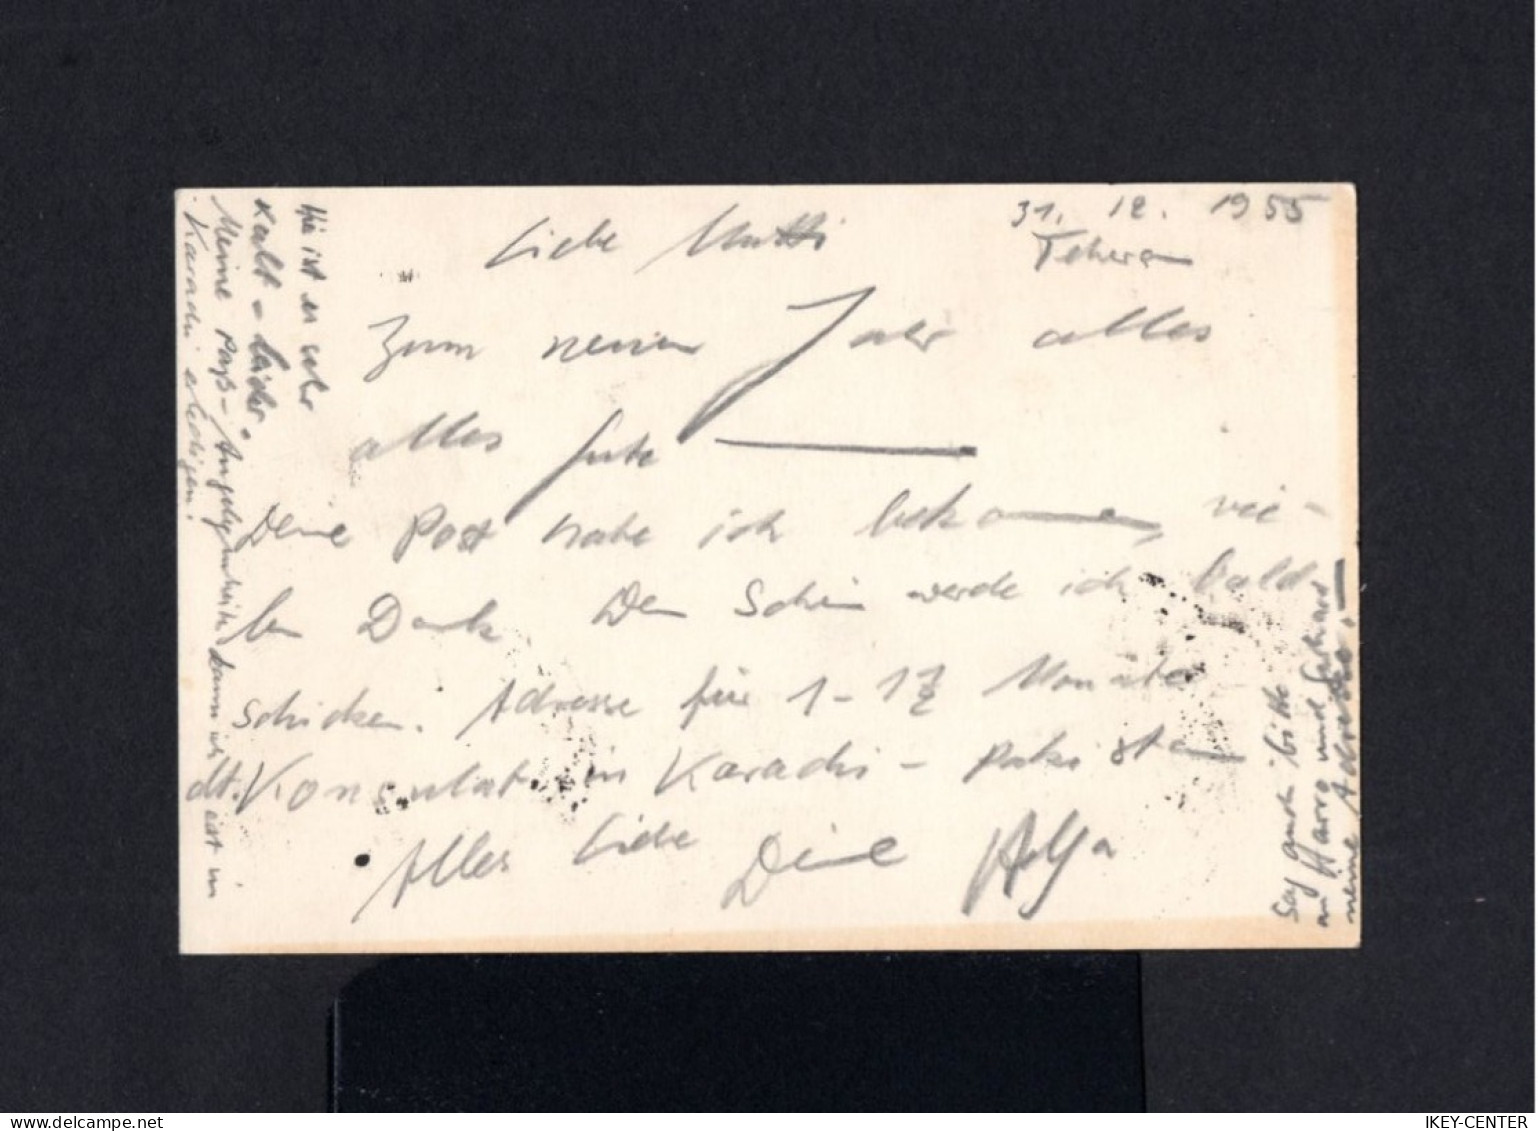 31. 12. 1955
Teheran
Liebe Mutti
Zum neuen Jahr alles
alles Gute
Deine Post habe ich bekommen, vie-
len Dank. Den Schein werde ich bald
schicken. Adresse für 1-1½ Monate
dt. Konsulat in Karachi - Pakistan
Alles Liebe Deine Helga
Hie ist es sehr
kalt - leider.
Meine Paß-Angelegenheit, dann ich ist in
Karachi erledigen!
Sag auch bitte
an Harro und Gerhard
meine Adresse.
IKEY-CENTER